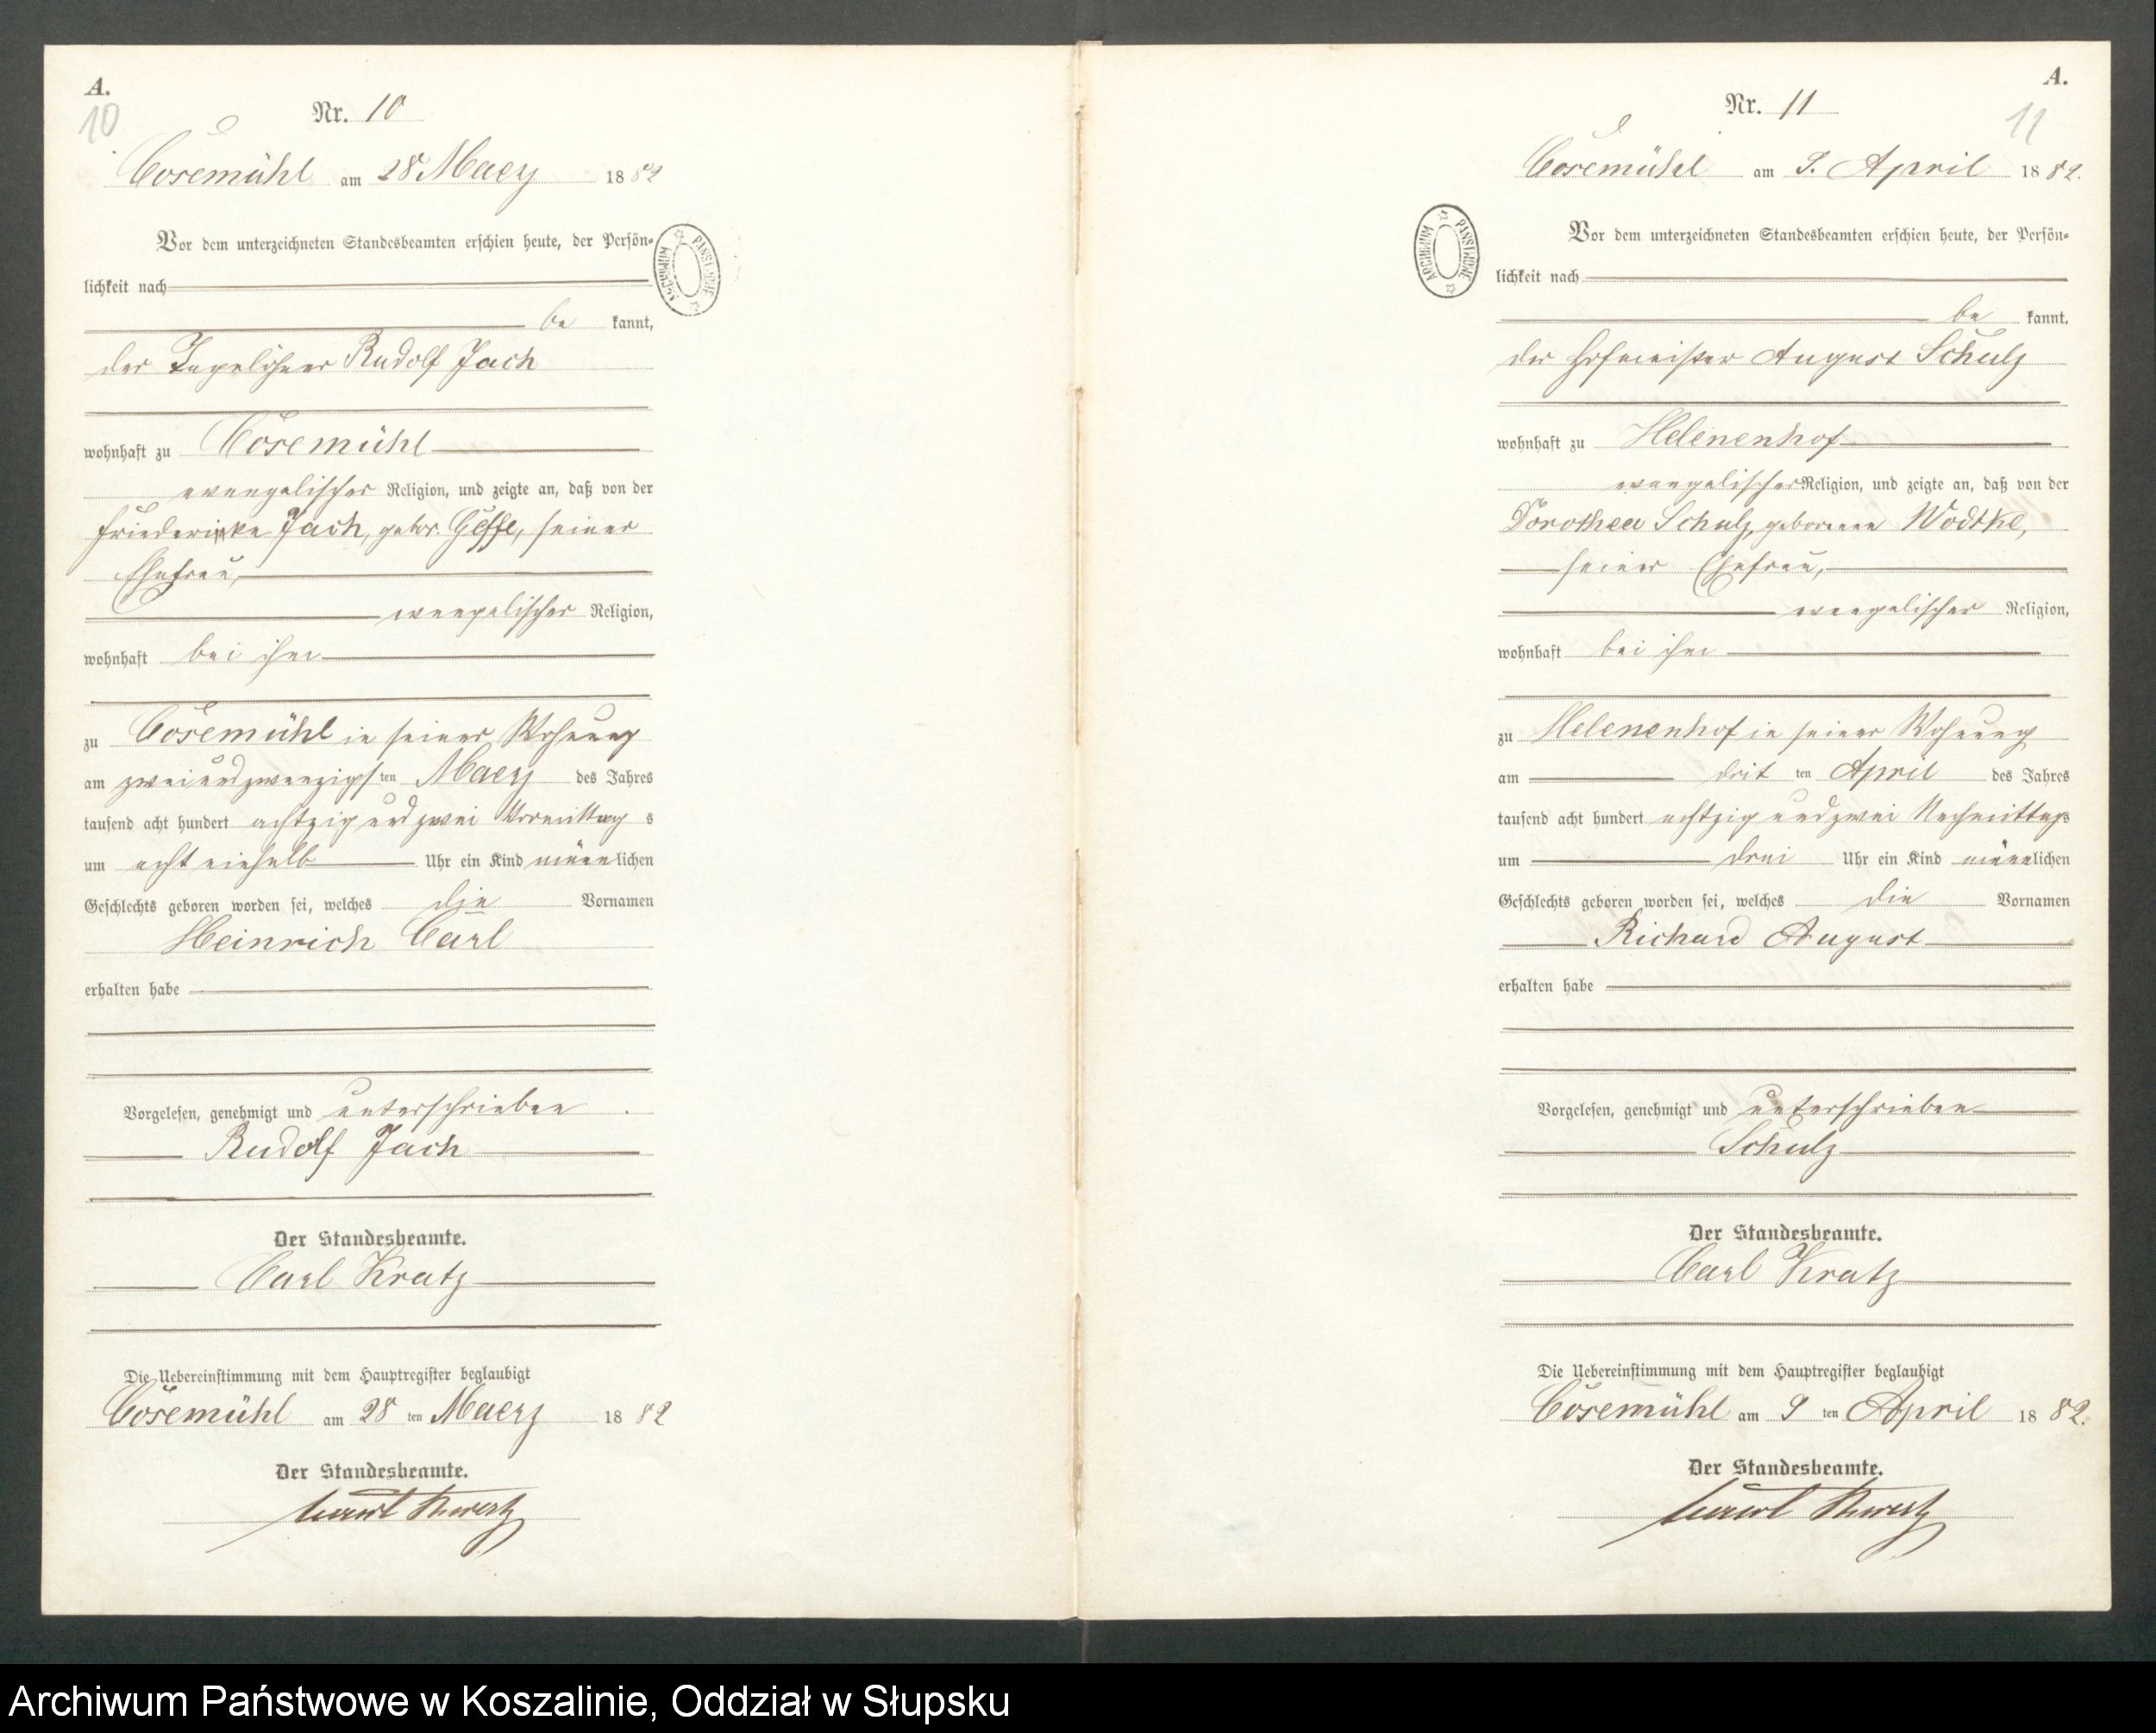 A.
10
Nr. 10
Cösemühl am 28 Maerz 1882
Vor dem unterzeichneten Standesbeamten erschien heute, der Persön-
lichkeit nach
be kannt,
der Tagelöhner Rudolf Jach
wohnhaft zu Cösemühl
evangelischer Religion, und zeigte an, daß von der
Friederike Jach, gebor. Geffe, seiner
Ehefrau,
evangelischer Religion,
wohnhaft bei ihm
zu Cösemühl in seiner Wohnung
am zweiundzwanzigsten Maerz des Jahres
tausend acht hundert achtzig und zwei Vormittags
um acht einhalb Uhr ein Kind männlichen
Geschlechts geboren worden sei, welches die Vornamen
Heinrich Carl
erhalten habe
Vorgelesen, genehmigt und unterschrieben.
Rudolf Jach
Der Standesbeamte.
Carl Kratz
Die Uebereinstimmung mit dem Hauptregister beglaubigt
Cösemühl am 28 ten Maerz 1882
Der Standesbeamte.
Carl Kratz
ARCHIWUM PAŃSTWOWE
A.
11
Nr. 11
Cösemühl am 9. April 1882.
Vor dem unterzeichneten Standesbeamten erschien heute, der Persön-
lichkeit nach
be kannt,
der Hofmeister August Schulz
wohnhaft zu Helenenhof
evangelischer Religion, und zeigte an, daß von der
Dorothea Schulz, geborenen Wodtke,
seiner Ehefrau,
evangelischer Religion,
wohnhaft bei ihm
zu Helenenhof in seiner Wohnung
am drit ten April des Jahres
tausend acht hundert achtzig und zwei Nachmittags
um drei Uhr ein Kind männlichen
Geschlechts geboren worden sei, welches die Vornamen
Richard August
erhalten habe
Vorgelesen, genehmigt und unterschrieben
Schulz
Der Standesbeamte.
Carl Kratz
Die Uebereinstimmung mit dem Hauptregister beglaubigt
Cösemühl am 9 ten April 1882.
Der Standesbeamte.
Carl Kratz
ARCHIWUM PAŃSTWOWE
Archiwum Państwowe w Koszalinie, Oddział w Słupsku